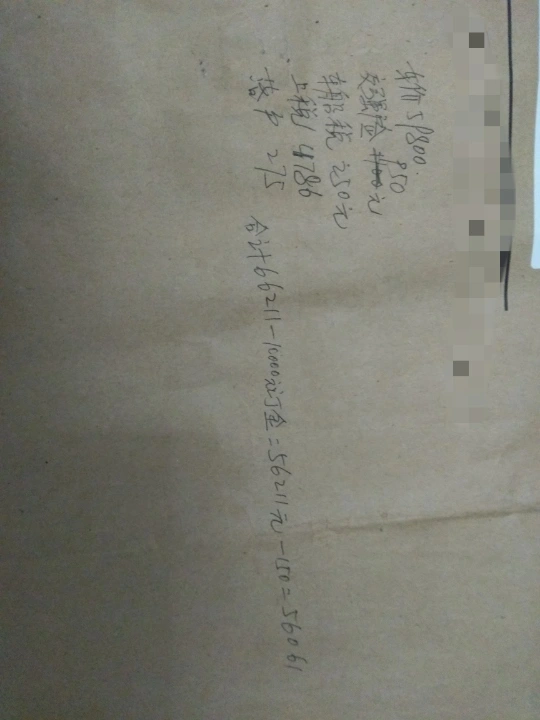 车价 59800.
950
交强险 1100元
車船税 250元
上税 4786
落户 275
合计66211-10000元订金=56211元-150=56061